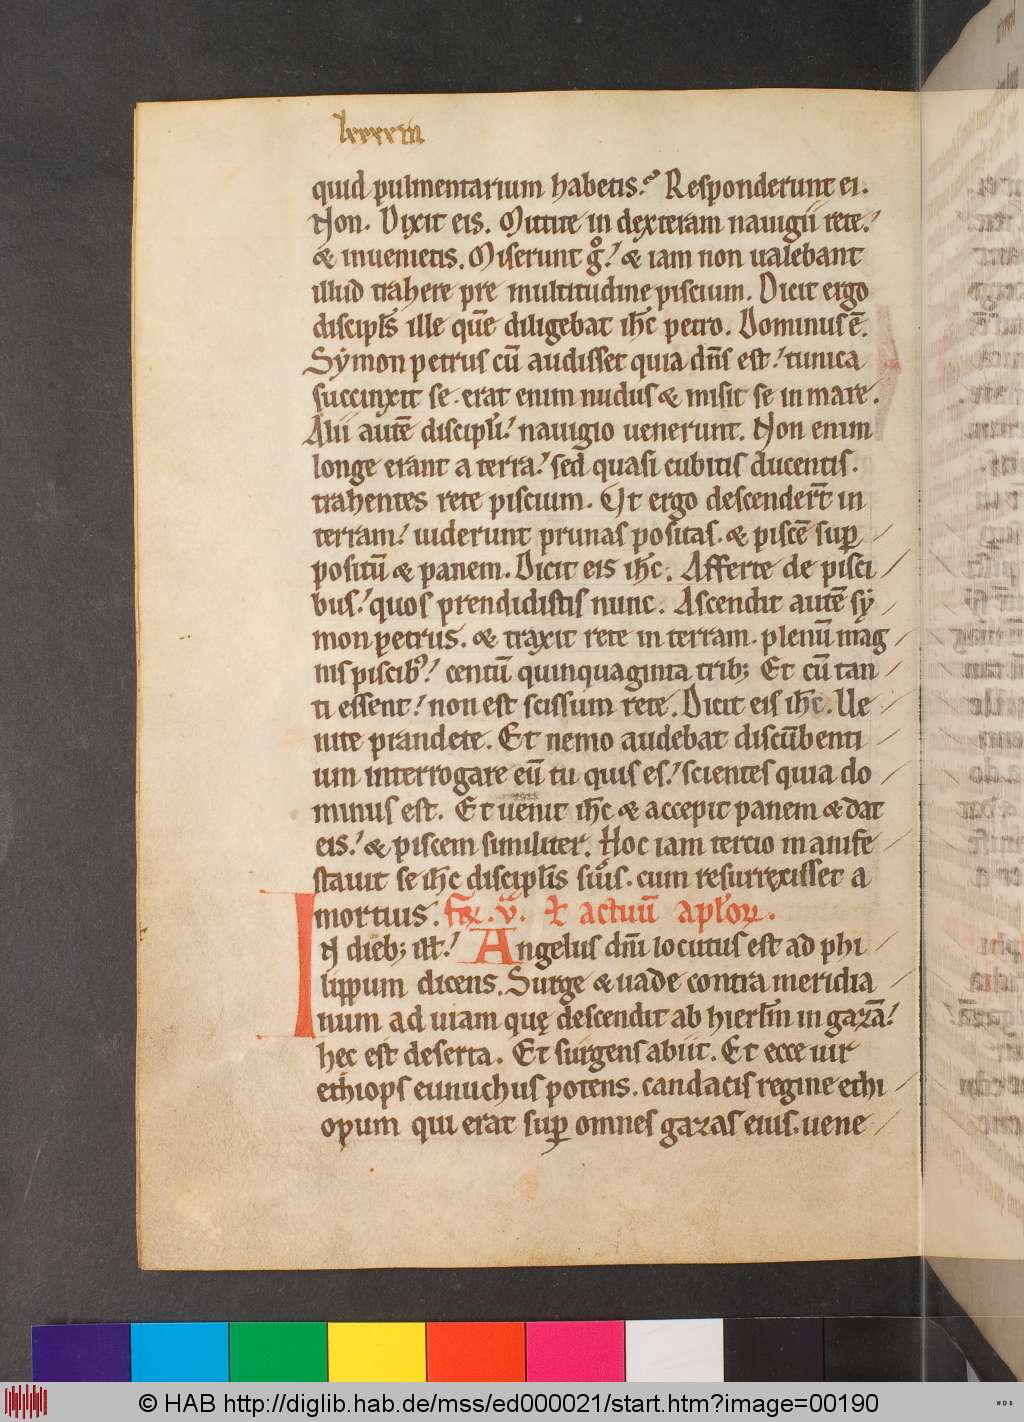 lxxxxiii
quid pulmentarium habetis. Responderunt ei.
Non. Dixit eis. Mittite in dexteram nauigii rete.
& inuenietis. Miserunt g̊. & iam non ualebant
illud trahere pre multitudine piscium. Dicit ergo
discipl̄s ille quē diligebat ih̄c petro. Dominus ē.
Sẏmon petrus cū audisset quia dn̄s est. tunica
succinxit se. erat enim nudus & misit se in mare.
Alii autē discipl̄i. nauigio uenerunt. Non enim
longe erant a terra. sed quasi cubitis ducentis.
trahentes rete piscium. Vt ergo descender̄t in
terram. uiderunt prunas positas. & piscē sup̱
positū & panem. Dicit eis ih̄c. Afferte de pisci
bus. quos prendidistis nunc. Ascendit autē sẏ
mon petrus. & traxit rete in terram. plenū mag
nis piscib⁹. centū quinquaginta trib; Et cū tan
ti essent. non est scissum rete. Dicit eis ih̄c. Ue
nite prandete. Et nemo audebat discūbenti
um interrogare eū tu quis es. scientes quia do
minus est. Et uenit ih̄c & accepit panem & dat
eis. & piscem similiter. Hoc iam tercio manife
stauit se ih̄c discipl̄is suis. cum resurrexisset a
mortuis. fer̄. v̄. actuū apl̄oꝝ.
IN dieb; ill̄. Angelus dn̄i locutus est ad phi
lippum dicens. Surge & uade contra meridia
num ad uiam quę descendit ab hierl̄m in gazā.
hec est deserta. Et surgens abiit. Et ecce uir
ethiops eunuchus potens. candacis regine ethi
opum qui erat sup̱ omnes gazas eius. uene
© HAB http://diglib.hab.de/mss/ed000021/start.htm?image=00190